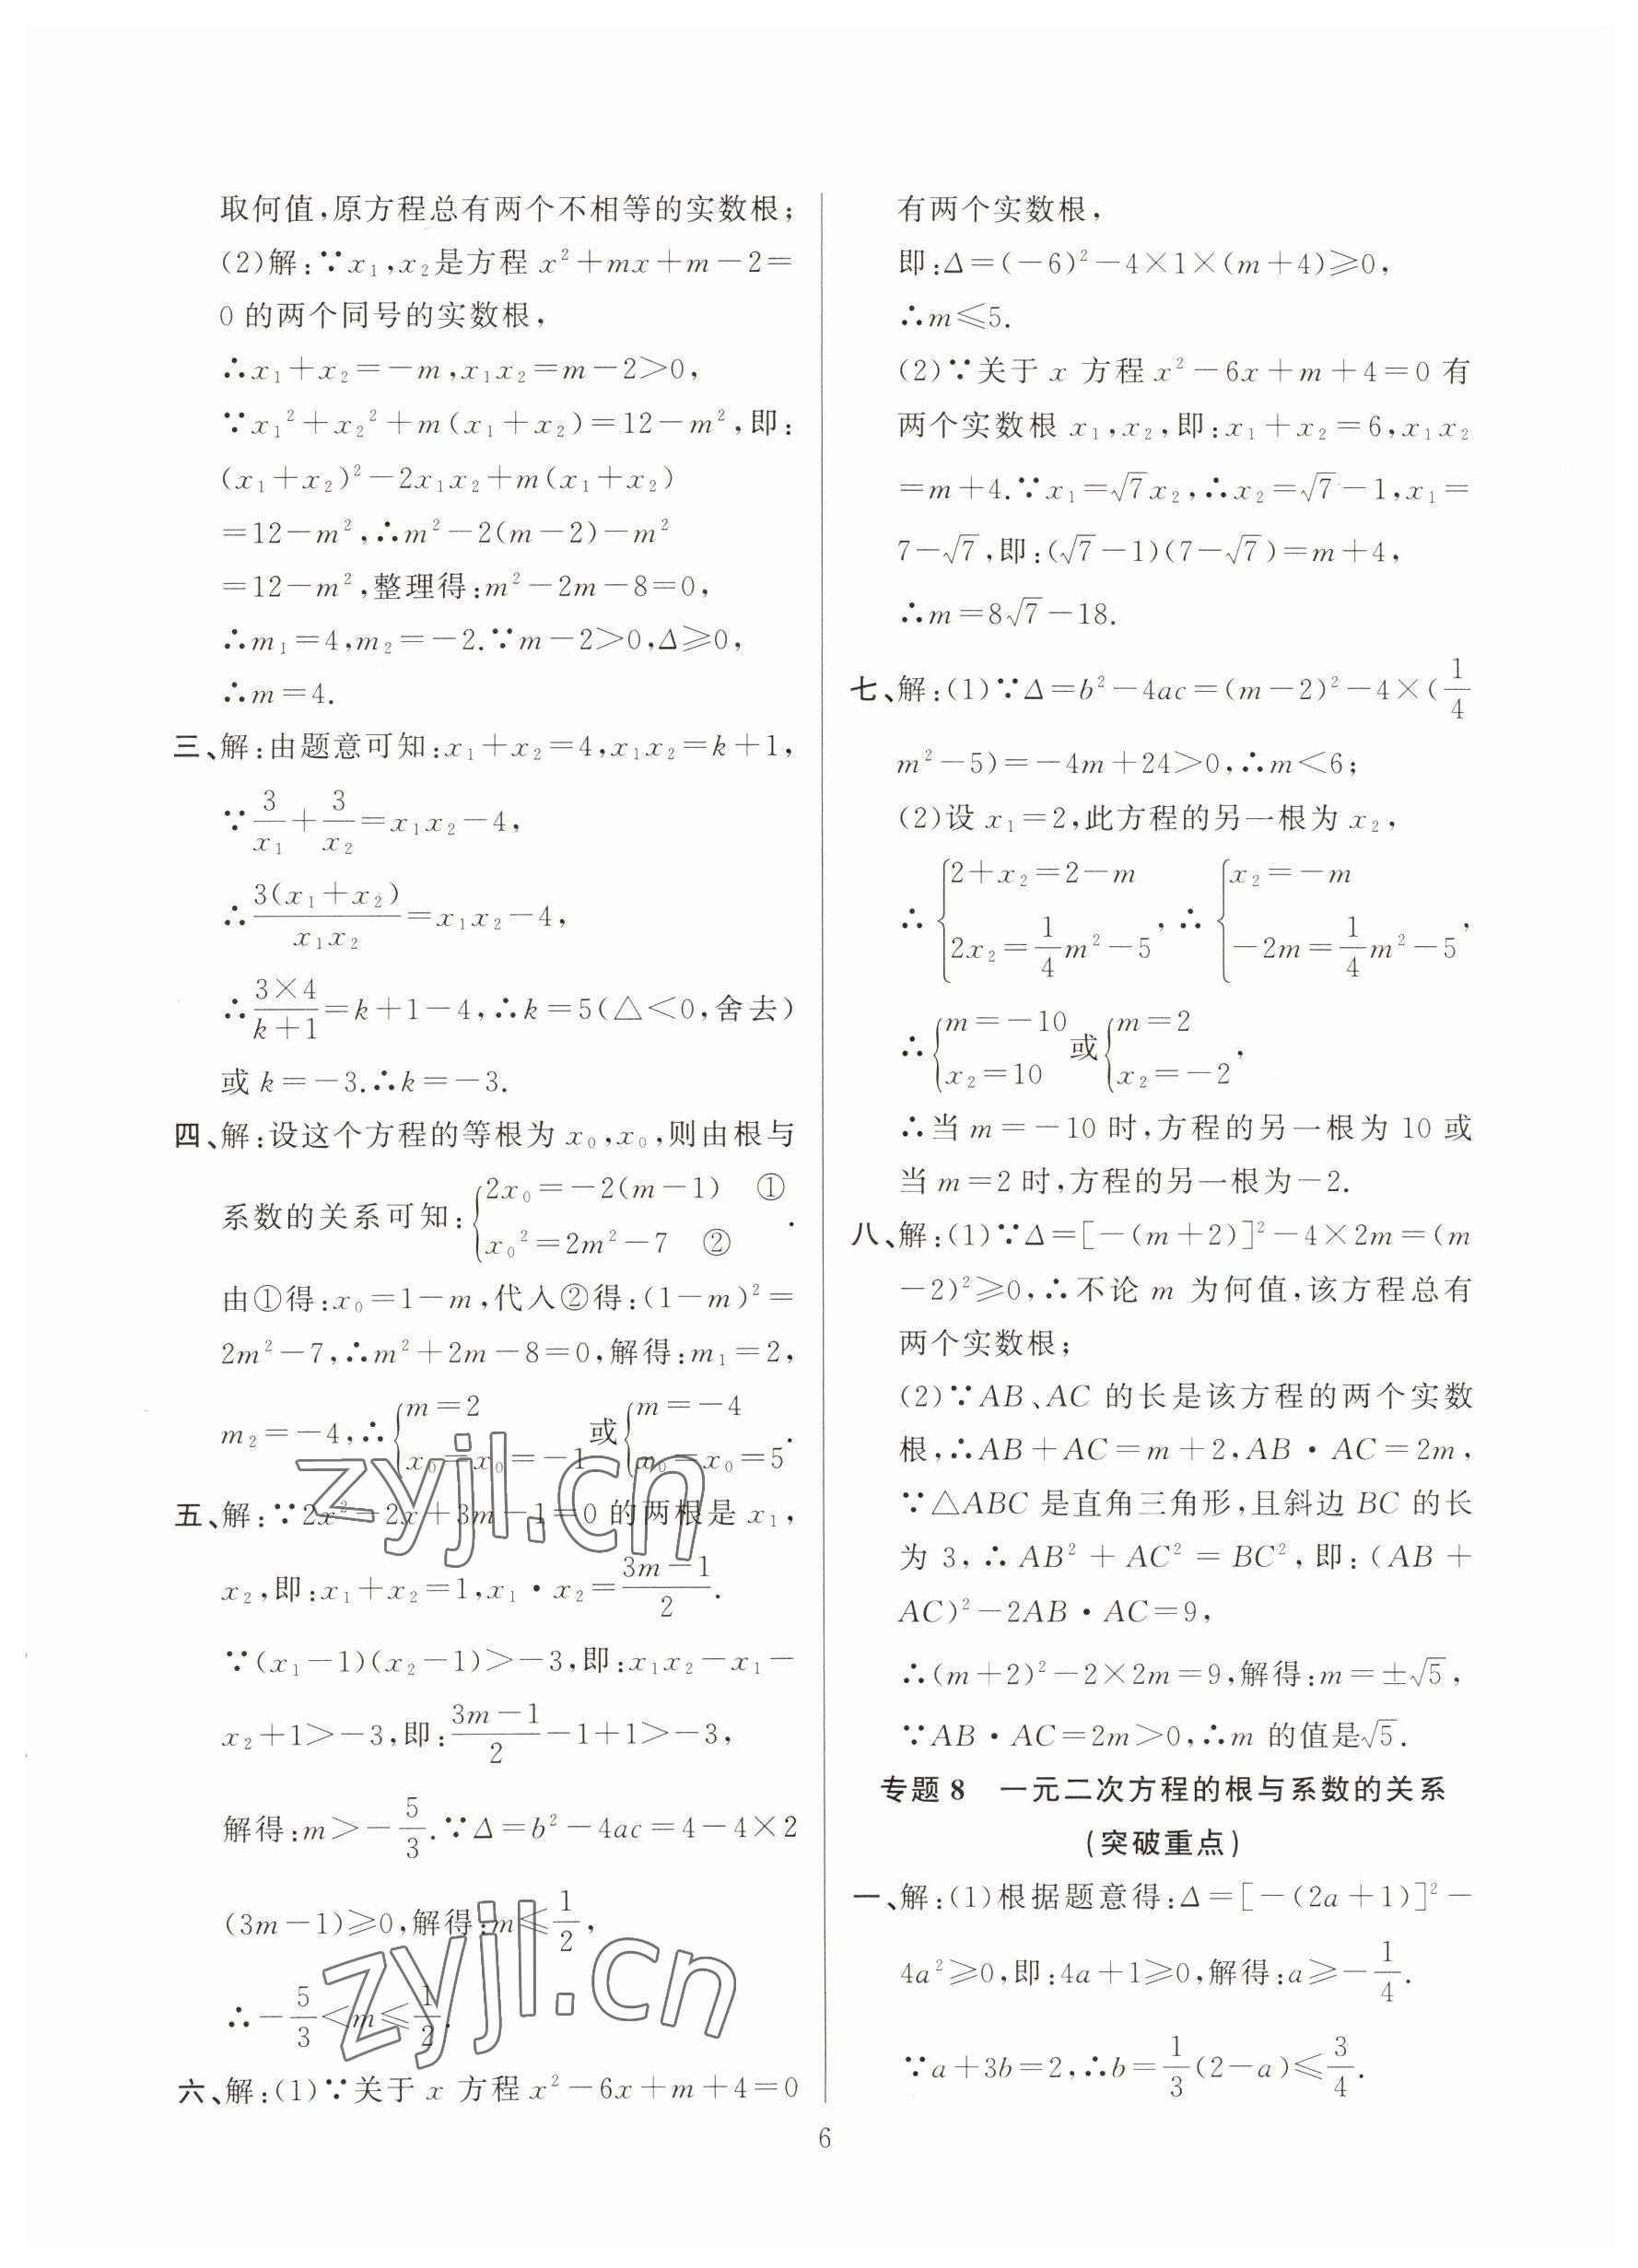 取何值,原方程总有两个不相等的实数根;
(2)解:∵x₁,x₂是方程 x²+mx+m-2=
0 的两个同号的实数根,
∴x₁+x₂=-m,x₁x₂=m-2>0,
∵x₁²+x₂²+m(x₁+x₂)=12-m²,即:
(x₁+x₂)²-2x₁x₂+m(x₁+x₂)
=12-m²,∴m²-2(m-2)-m²
=12-m²,整理得:m²-2m-8=0,
∴m₁=4,m₂=-2.∵m-2>0,Δ≥0,
∴m=4.
三、解:由题意可知:x₁+x₂=4,x₁x₂=k+1,
∵3/x₁+3/x₂=x₁x₂-4,
∴3(x₁+x₂)/x₁x₂=x₁x₂-4,
∴3×4/k+1=k+1-4,∴k=5(△<0,舍去)
或 k=-3.∴k=-3.
四、解:设这个方程的等根为 x₀,x₀,则由根与
系数的关系可知:{2x₀=-2(m-1) ① x₀²=2m²-7 ②.
由①得:x₀=1-m,代入②得:(1-m)²=
2m²-7,∴m²+2m-8=0,解得:m₁=2,
m₂=-4,∴{m=2 x₀=x₀=-1或{m=-4 x₀=x₀=5.
五、解:∵2x²-2x+3m-1=0 的两根是 x₁,
x₂,即:x₁+x₂=1,x₁·x₂=3m-1/2.
∵(x₁-1)(x₂-1)>-3,即:x₁x₂-x₁-
x₂+1>-3,即:3m-1/2-1+1>-3,
解得:m>-5/3.∵Δ=b²-4ac=4-4×2
(3m-1)≥0,解得:m≤1/2,
∴-5/3<m≤1/2.
六、解:(1)∵关于 x 方程 x²-6x+m+4=0
有两个实数根,
即:Δ=(-6)²-4×1×(m+4)≥0,
∴m≤5.
(2)∵关于 x 方程 x²-6x+m+4=0 有
两个实数根 x₁,x₂,即:x₁+x₂=6,x₁x₂
=m+4.∵x₁=√7x₂,∴x₂=√7-1,x₁=
7-√7,即:(√7-1)(7-√7)=m+4,
∴m=8√7-18.
七、解:(1)∵Δ=b²-4ac=(m-2)²-4×(1/4
m²-5)=-4m+24>0,∴m<6;
(2)设 x₁=2,此方程的另一根为 x₂,
∴{2+x₂=2-m 2x₂=1/4m²-5,∴{x₂=-m -2m=1/4m²-5,
∴{m=-10 x₂=10或{m=2 x₂=-2,
∴当 m=-10 时,方程的另一根为 10 或
当 m=2 时,方程的另一根为-2.
八、解:(1)∵Δ=[-(m+2)]²-4×2m=(m
-2)²≥0,∴不论 m 为何值,该方程总有
两个实数根;
(2)∵AB、AC 的长是该方程的两个实数
根,∴AB+AC=m+2,AB·AC=2m,
∵△ABC 是直角三角形,且斜边 BC 的长
为 3,∴AB²+AC²=BC²,即:(AB+
AC)²-2AB·AC=9,
∴(m+2)²-2×2m=9,解得:m=±√5,
∵AB·AC=2m>0,∴m 的值是√5.
专题 8 一元二次方程的根与系数的关系
(突破重点)
一、解:(1)根据题意得:Δ=[-(2a+1)]²-
4a²≥0,即:4a+1≥0,解得:a≥-1/4.
∵a+3b=2,∴b=1/3(2-a)≤3/4.
6
zyjl.cn
zyjl.cn